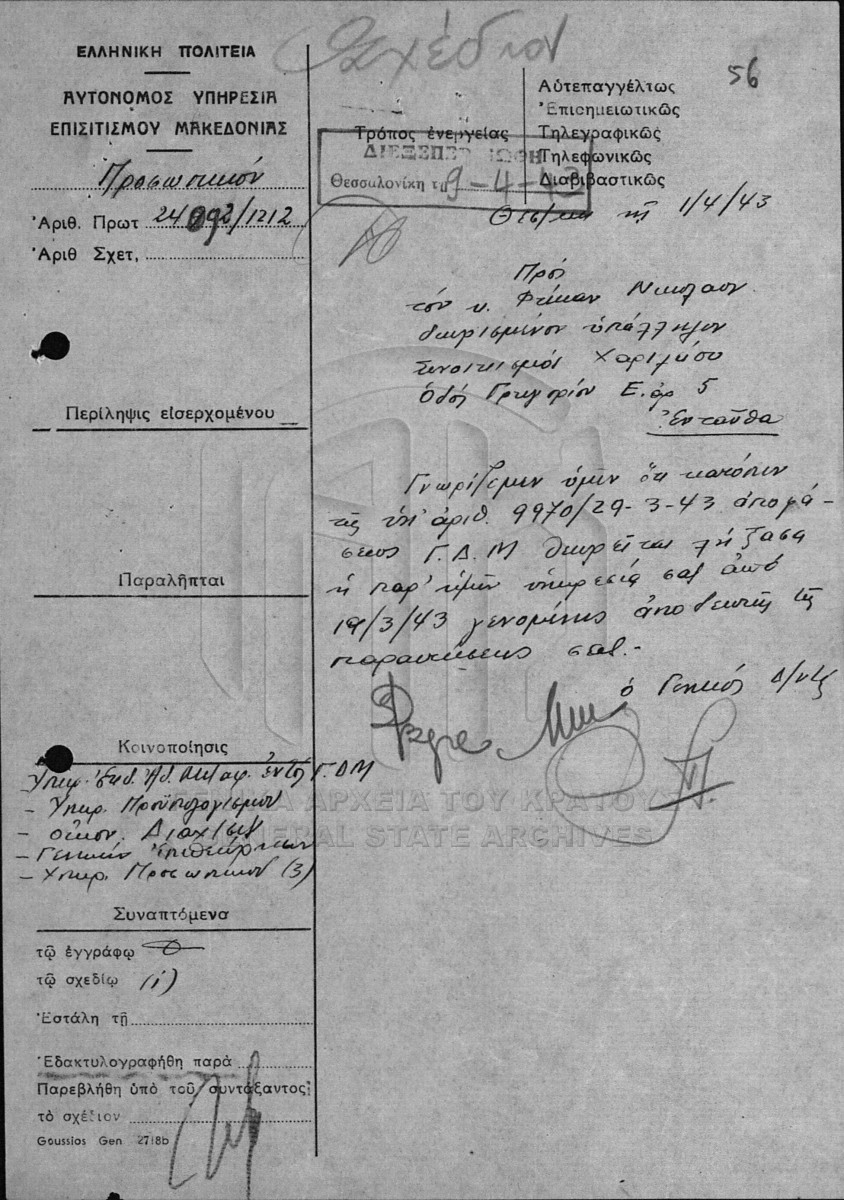 Σχέδιον
56
ΕΛΛΗΝΙΚΗ ΠΟΛΙΤΕΙΑ
ΑΥΤΟΝΟΜΟΣ ΥΠΗΡΕΣΙΑ
ΕΠΙΣΙΤΙΣΜΟΥ ΜΑΚΕΔΟΝΙΑΣ
Προσωπικόν
Ἀριθ. Πρωτ 24092/1212
Ἀριθ Σχετ,
Τρόπος ἐνεργείας
Αὐτεπαγγέλτως
Ἐπισημειωτικῶς
Τηλεγραφικῶς
Τηλεφωνικῶς
Διαβιβαστικῶς
Θεσσαλονίκη τῇ 9-4-43
Θεσ/κη τῇ 1/4/43
Πρὸς
τὸν κ. Νικόλαον
διωρισμένον ὑπάλληλον
Συνοικισμὸς Χαριλάου
Ὁδὸς Γρηγορίου Ε. ἀρ 5
Ἐνταῦθα
Γνωρίζομεν ὑμῖν ὅτι κατόπιν
τῆς ὑπ' ἀριθ. 9970/29-3-43 ἀποφά-
σεως Γ.Δ.Μ θεωρεῖται λήξασα
ἡ παρ' ἡμῖν ὑπηρεσία σας ἀπὸ
19/3/43 γενομένης ἀποδεκτῆς τῆς
παραιτήσεώς σας.-
ὁ Γενικὸς Δ/ντὴς
Περίληψις εἰσερχομένου
Παραλῆπται
Κοινοποίησις
Ὑπηρ. Γ.Δ.Μ
- Ὑπηρ. Προϋπολογισμοῦ
- Οἰκον. Διαχ/σιν
- Γενικὴν Ἐπιθεώρησιν
- Ὑπηρ. Προσωπικοῦ (3)
ΓΕΝΙΚΑ ΑΡΧΕΙΑ ΤΟΥ ΚΡΑΤΟΥΣ
GENERAL STATE ARCHIVES
Συναπτόμενα
τῷ ἐγγράφῳ
τῷ σχεδίῳ (1)
Ἐστάλη τῇ
Ἐδακτυλογραφήθη παρὰ
Παρεβλήθη ὑπὸ τοῦ συντάξαντος
τὸ σχέδιον
Goussios Gen 2718b